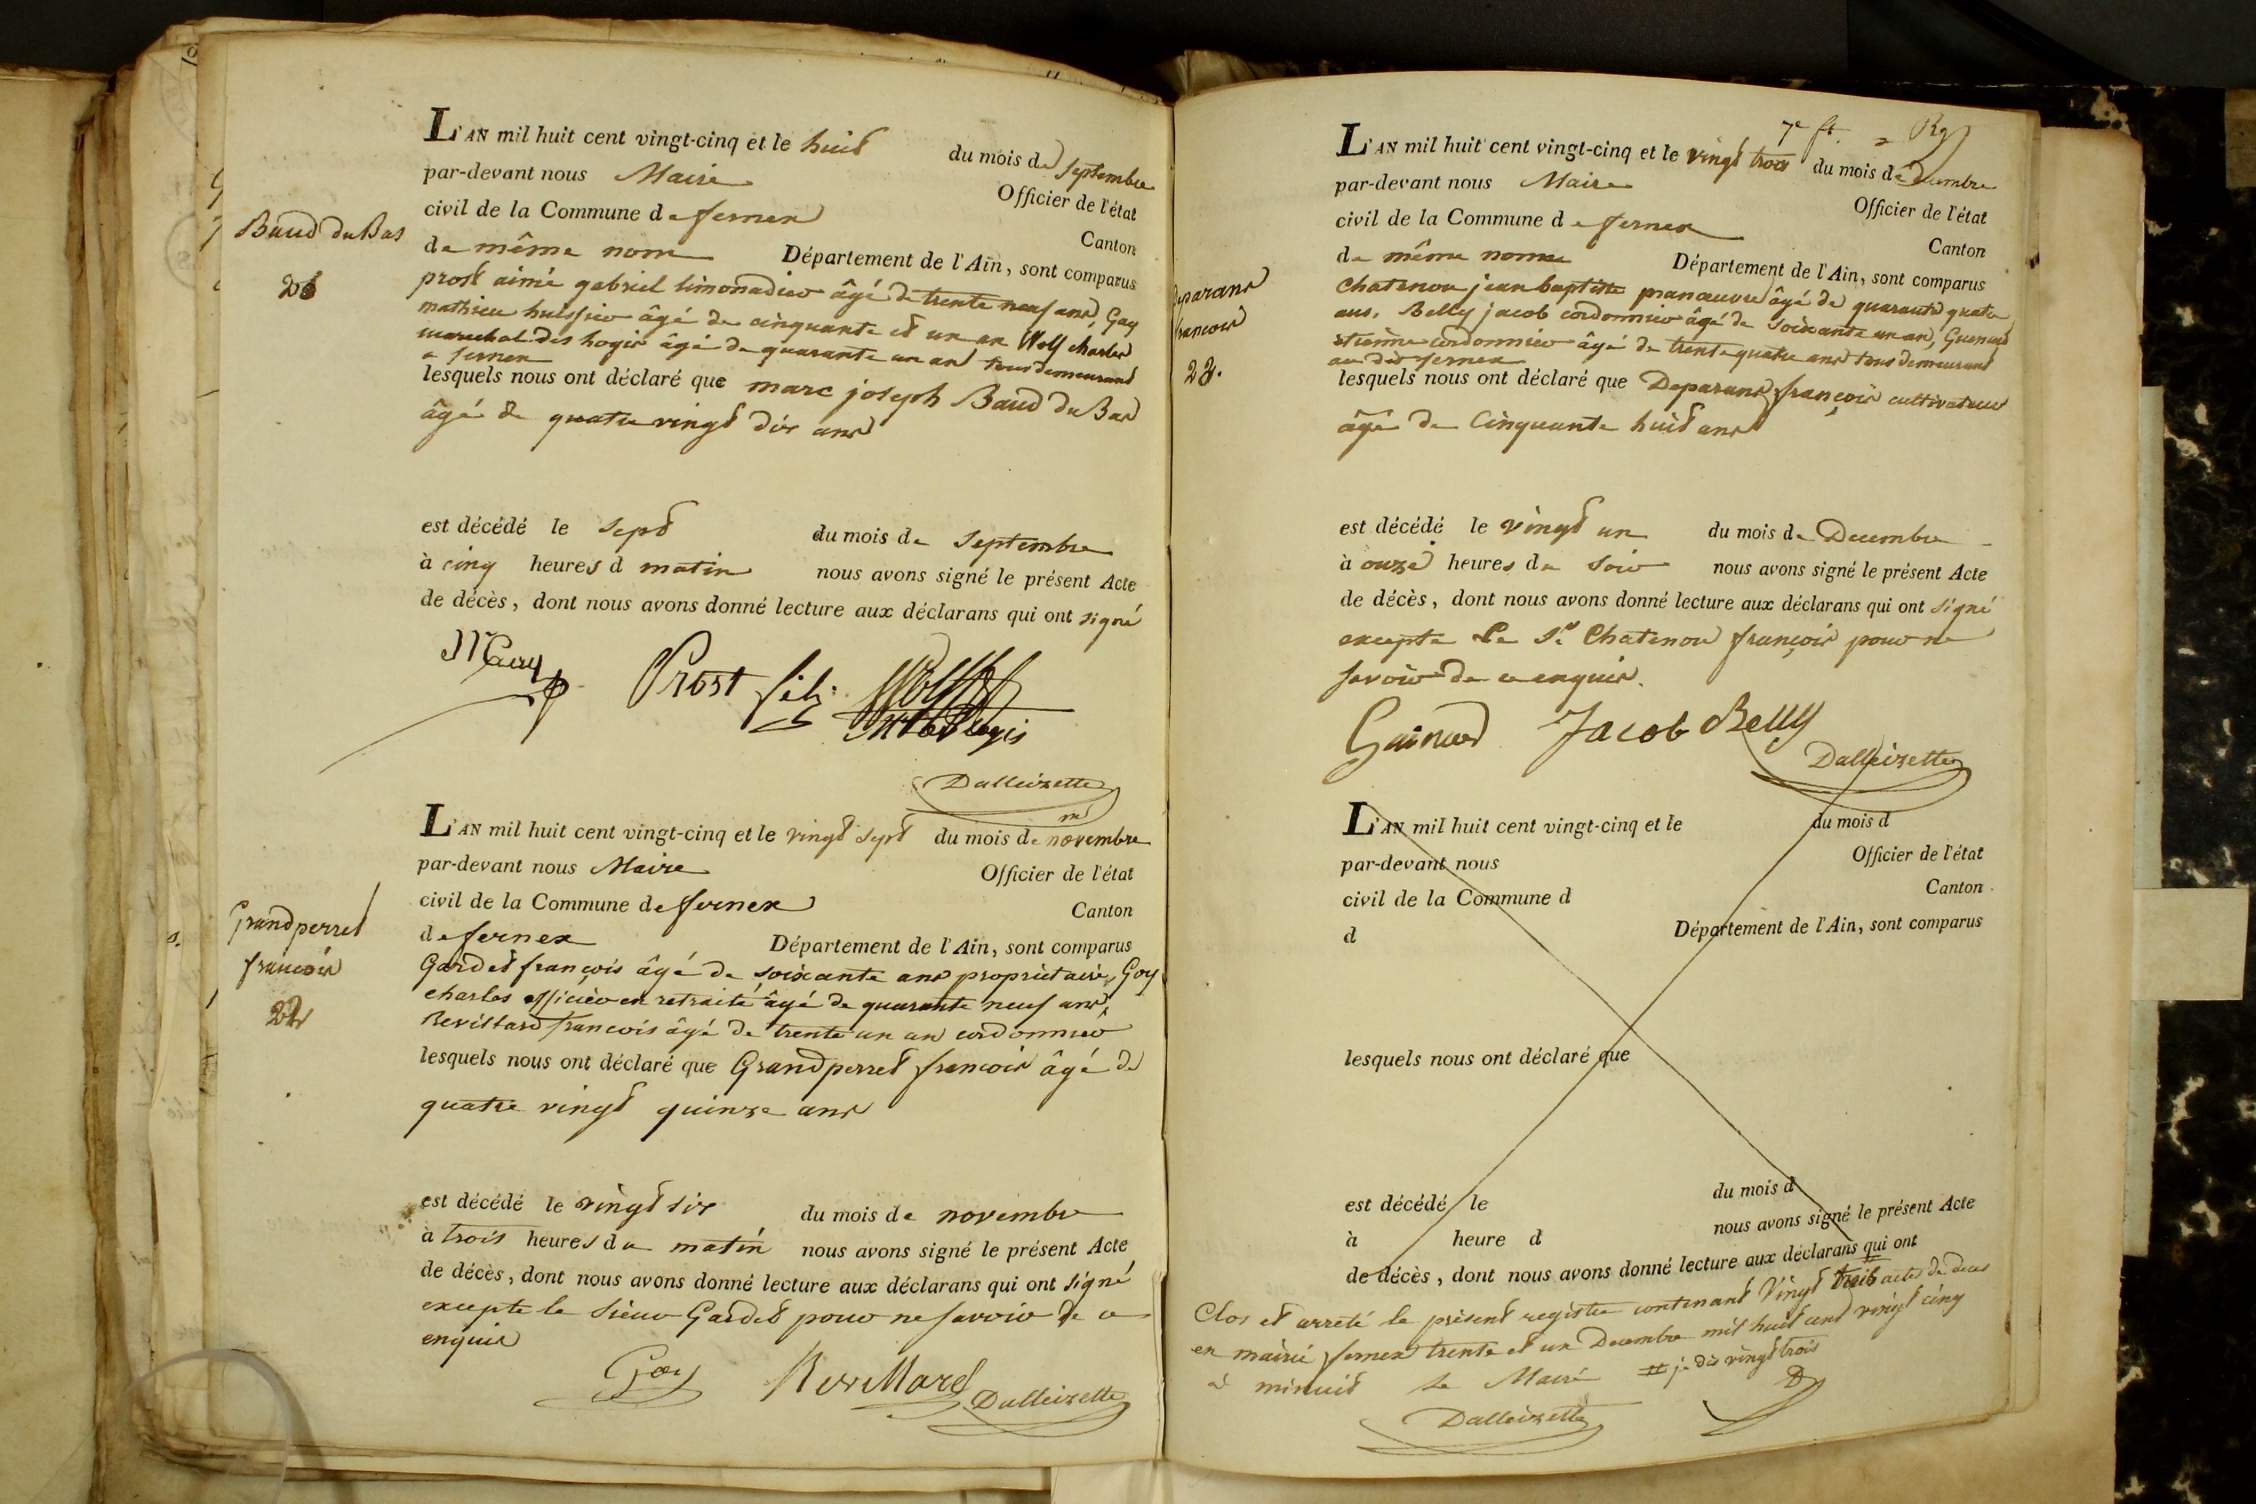 Baud du Bas
L'AN mil huit cent vingt-cinq et le huit du mois de Septembre
par-devant nous Maire Officier de l'état
civil de la Commune de fernex Canton
de même nom Département de l'Ain, sont comparus
prost aimé gabriel limonadier âgé de trente neuf ans, Gay
mathieu huissier âgé de cinquante et un an Wolf charles
marechal des logis âgé de quarante un an tous demeurant
a fernex
lesquels nous ont déclaré que marc joseph Baud du Bas
âgé de quatre vingt dix ans
est décédé le sept du mois de Septembre
à cinq heures d matin nous avons signé le présent Acte
de décès, dont nous avons donné lecture aux déclarans qui ont signé
Prost fils. Wolff
Dalleizette
Grandperret
francois
22
L'AN mil huit cent vingt-cinq et le vingt sept du mois de novembre
par-devant nous Maire Officier de l'état
civil de la Commune de fernex Canton
de fernex Département de l'Ain, sont comparus
Gardet françois âgé de soixante ans propriétaire, Goy
charles officier en retraite âgé de quarante neuf ans,
Revillard francois âgé de trente un an cordonnier
lesquels nous ont déclaré que Grandperret francois âgé de
quatre vingt quinze ans
est décédé le vingt six du mois de novembre
à trois heures du matin nous avons signé le présent Acte
de décès, dont nous avons donné lecture aux déclarans qui ont signé
excepte le sieur Gardet pour ne savoir de ce
enquis
Goy Revillard Dalleizette
7e ft.
Deparans
francois
23.
L'AN mil huit cent vingt-cinq et le vingt trois du mois de Decembre
par-devant nous Maire Officier de l'état
civil de la Commune de fernex Canton
de même nom Département de l'Ain, sont comparus
Chatenou jean baptiste manœuvre âgé de quarante quatre
ans, Belly jacob cordonnier âgé de soixante un an, Guenard
etienne cordonnier âgé de trente quatre ans tous demeurant
au dit fernex
lesquels nous ont déclaré que Deparans françois cultivateur
âgé de Cinquante huit ans
est décédé le vingt un du mois de Decembre
à onze heures du soir nous avons signé le présent Acte
de décès, dont nous avons donné lecture aux déclarans qui ont signé
excepte Le Sr Chatenou françois pour ne
savoir de ce enquis.
Guinard Jacob Belly
Dalleizette
L'AN mil huit cent vingt-cinq et le du mois d
par-devant nous Officier de l'état
civil de la Commune d Canton
d Département de l'Ain, sont comparus
lesquels nous ont déclaré que
est décédé le du mois d
à heure d nous avons signé le présent Acte
de décès, dont nous avons donné lecture aux déclarans qui ont
Clos et arreté le présent registre contenant Vingt trois actes de deces
en mairie fernex trente et un Decembre mil huit cent vingt cinq
à minuit Le Maire je dis vingt trois
Dalleizette